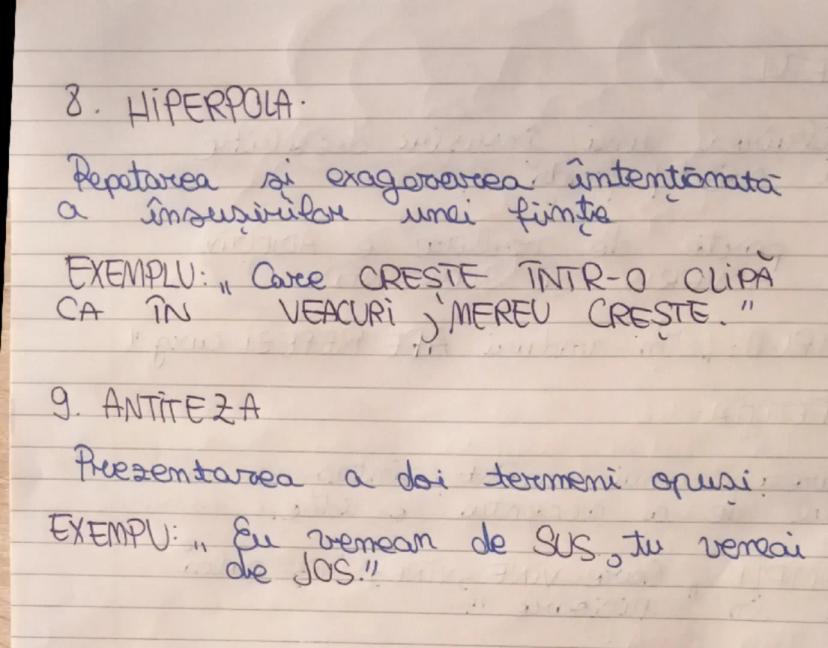 8. HIPERPOLA.
Repetarea și exagerarea întenționată
a însușirilor unei ființe
EXEMPLU: „Care CREȘTE ÎNTR-O CLIPĂ
CA ÎN VEACURI, MEREU CREȘTE.”
9. ANTITEZA
Prezentarea a doi termeni opuși.
EXEMPU: „Eu veneam de SUS, tu veneai
de JOS.”